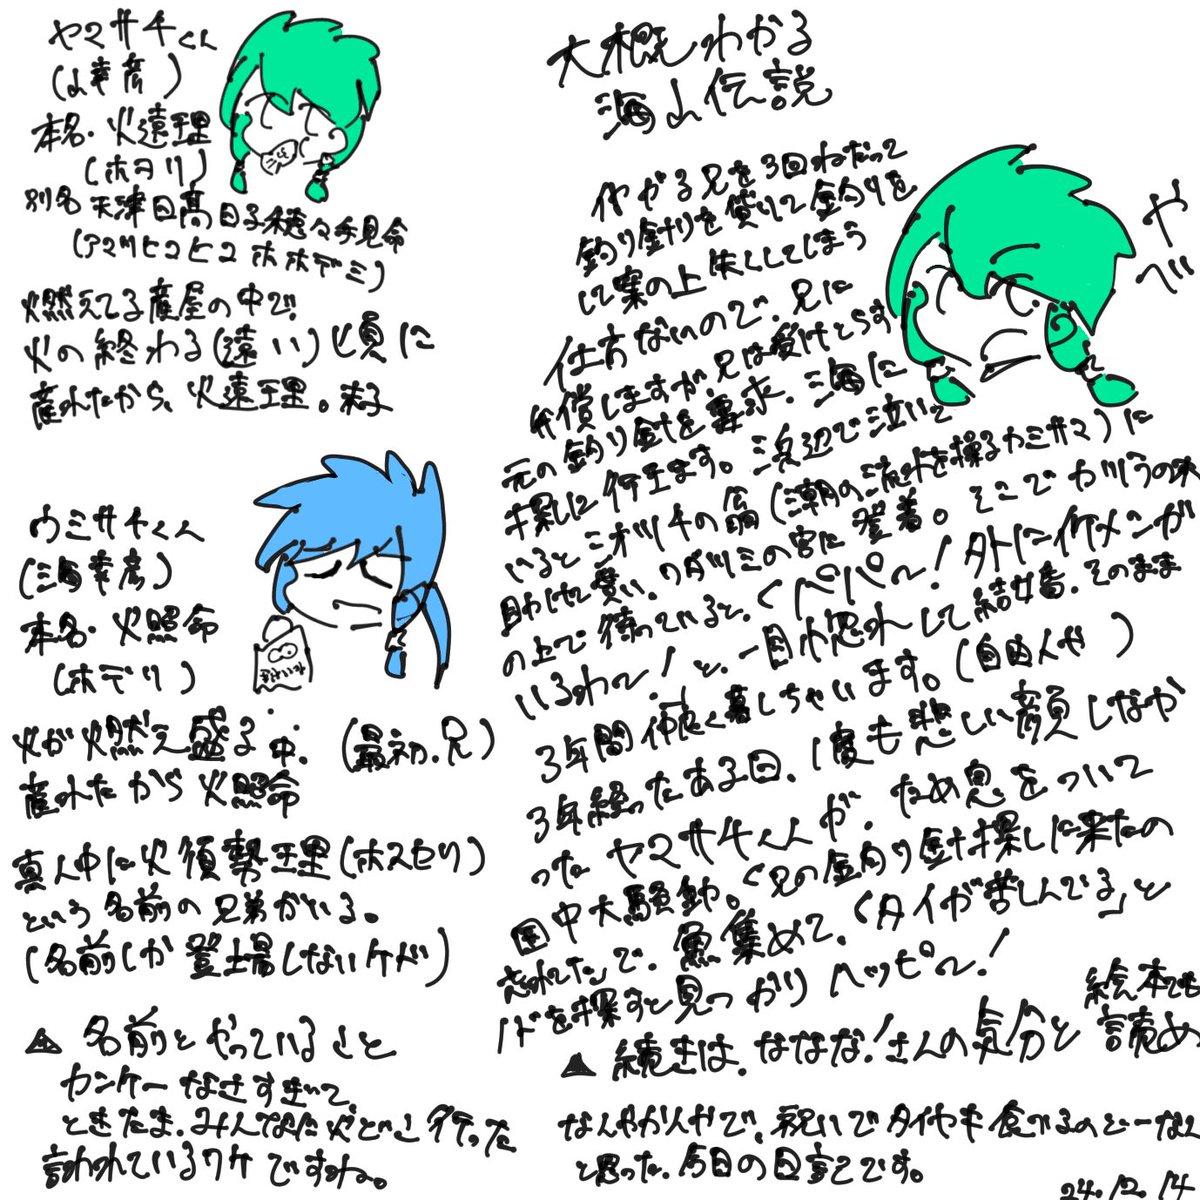 ヤマサチくん
(山幸彦)
本名・火遠理
(ホヲリ)
別名 天津日高日子穂々手見命
(アマツヒコヒコホホデミ)
燃えてる産屋の中で
火の終わる(遠い)頃に
産れたから、火遠理。末子
ウミサチくん
(海幸彦)
本名・火照命
(ホデリ)
火が燃え盛る中、(最初.兄)
産れたから火照命
真ん中に火須勢理(ホスセリ)
という名前の兄弟がいる。
(名前しか登場しないケド)
▲ 名前とやっていること
カンケーなさすぎて、
ときたま、みんなた火どこ行った
言われているワケですね。
大概わかる
海山伝説
やべ
イヤがる兄を3回ねだって
釣り針を貸りて釣りを
して案の上失くしてしまう
仕方ないので、兄に
弁償しますが、兄は受けとらず
元の釣り針を要求、海に
探しに行きます。浜辺で泣いて
いるとシオツチの翁(潮の流れを操るカミサマ)に
助けて貰い、ワダツミの宮に登着。そこでカツラの木
の上で待っていると、<パパ〜!外にイケメンが
いるわ〜!と、一目惚れして結婚、そのまま
3年間仲良く暮しちゃいます。(自由人や)
3年経ったある日、1度も悲しい顔しなか
ったヤマサチくんが、ため息をついて
国中大騒動。<兄の釣り針探しに来たの
忘れてた」で、魚集めて、<タイが苦しんでる」と
ノドを探すと見つかりハッピ〜!
▲ 続きは、ななな!さんの気分と 絵本でも 読め
なんやかんやで、祝いでタイやキ食べるのど〜なん
と思った、今日の日記です。
24.12.14